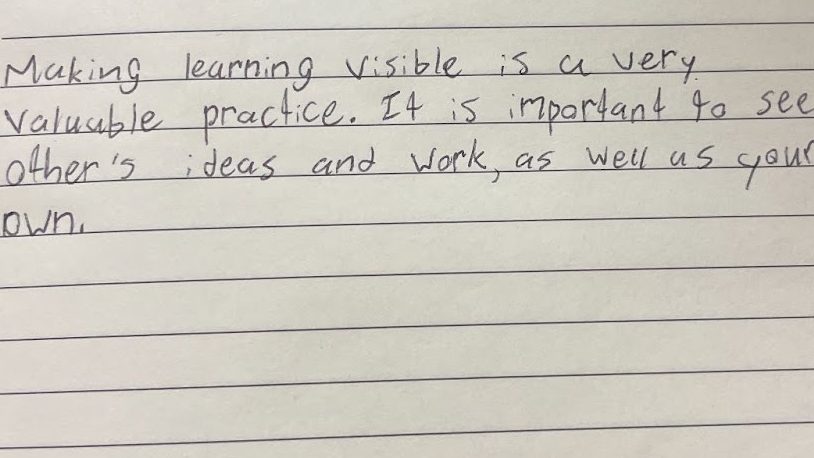 Making learning visible is a very
valuable practice. It is important to see
other's ideas and work, as well as your
own.